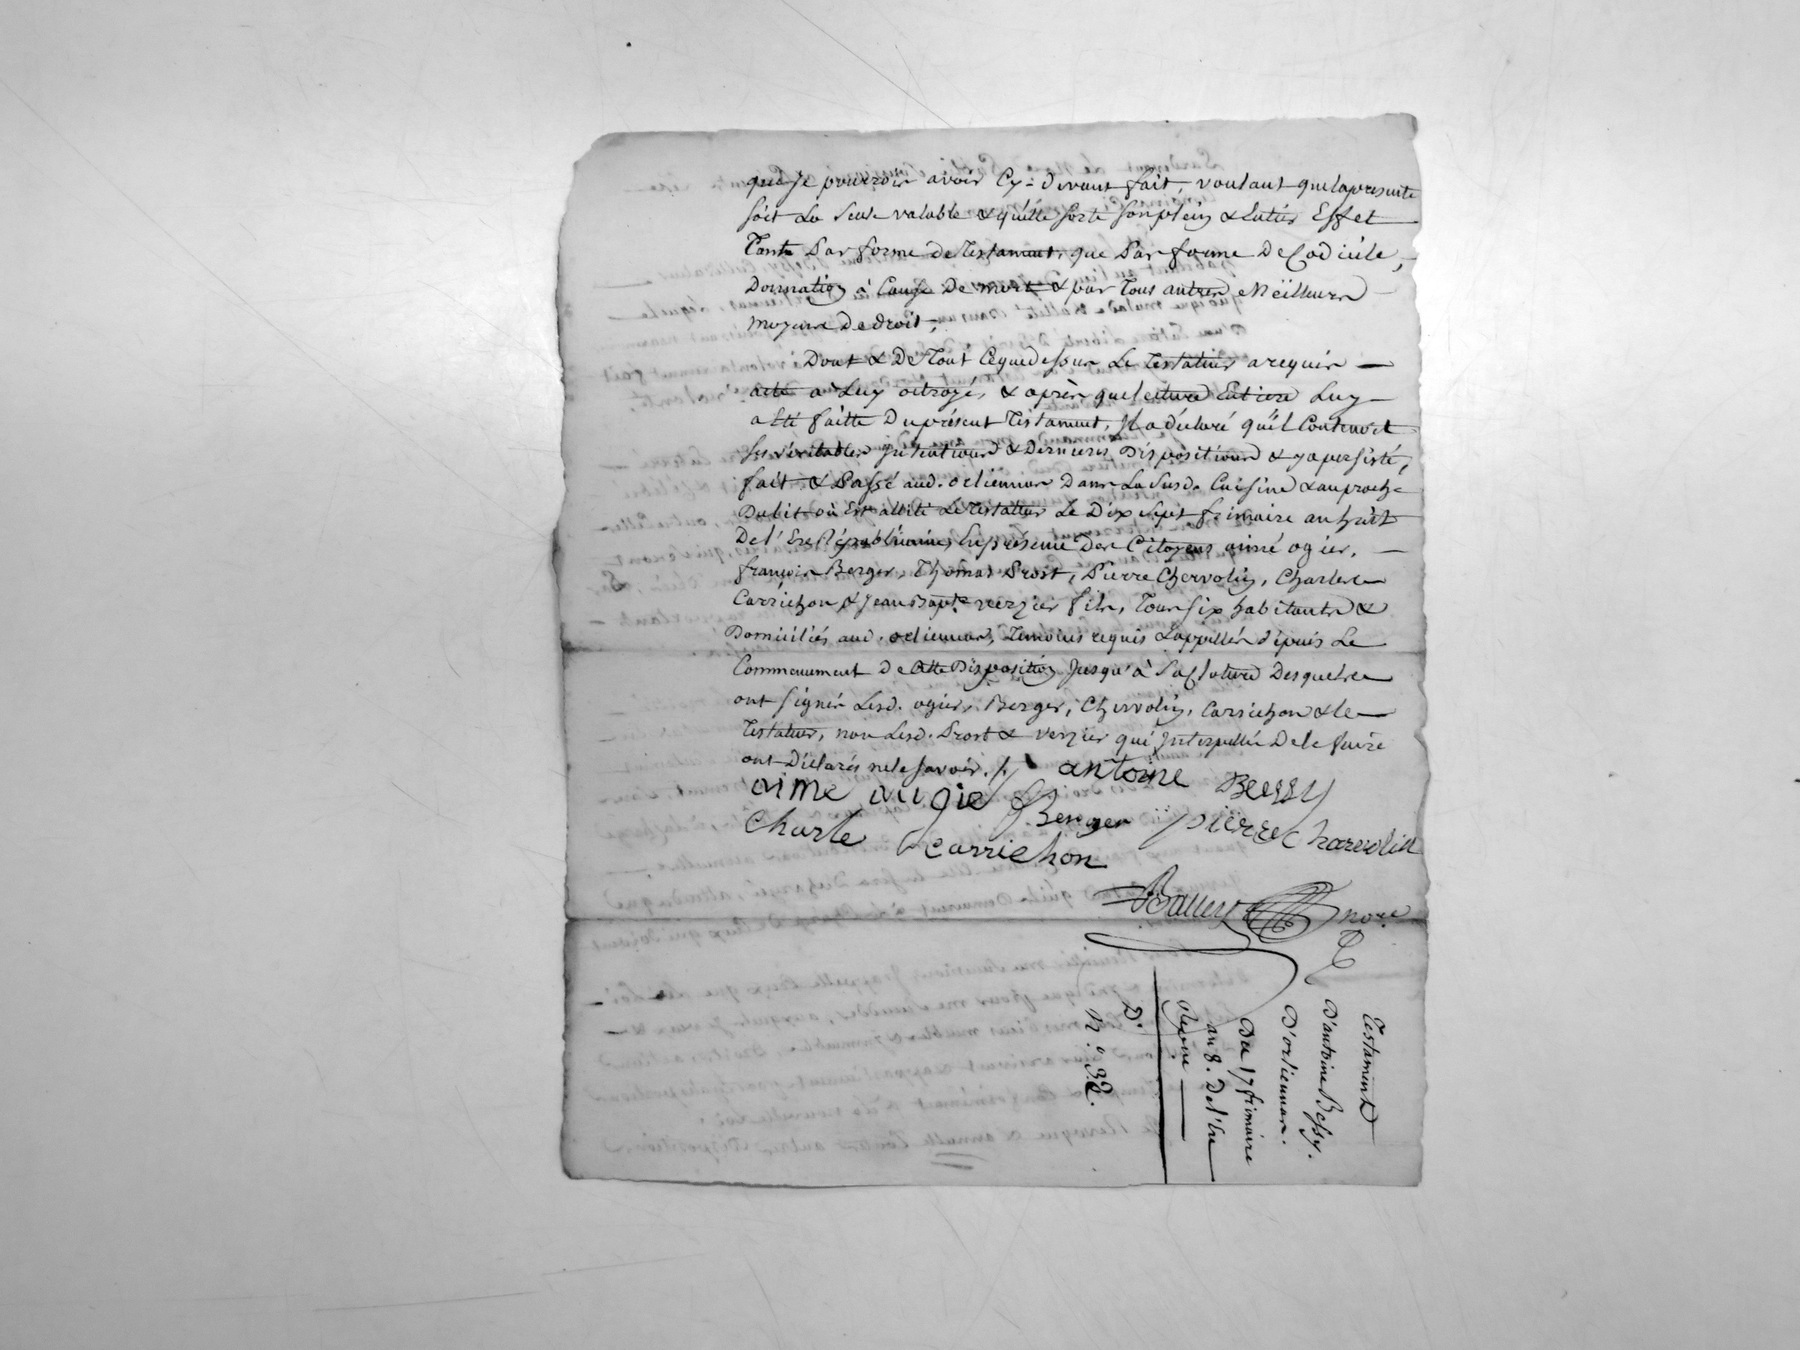 que Je pourrois avoir Cy-devant fait, voulant que la presente
soit La Seule valable & quelle sorte son plein & Entier Effet
Tant Par forme de Testament, que Par forme De Codicile,
Donnation à Cause De mort & par Tous autres Meilleurs
moyens De droit;
Dont & De Tout Ceque dessus Le Testateur a requis
acte à Luy octroyé, & après que lecture Entiere Luy
a Eté faitte Du présent Testament, Il a déclaré qu'il Contenoit
ses véritables Intentions & Dernieres Dispositions & y a persisté,
fait & Passé aud. orliennas Dans La Susd. Cuisine & au proche
Du lit où Est alité Le Testateur Le Dix Sept frimaire an huit
De l'Ere Républicaine, En présence Des Citoyens aimé ogier,
françois Berger, Thomas Prost, Pierre Chervolin, Charles
Carrichon & Jean Bapte. verzier fils, Tous Six habitants &
Domiciliés aud. orliennas, Témoins requis & appellés depuis Le
Commencement De Cette Disposition Jusqu'à Sa Cloture Desquels
ont signés Lesd. ogier, Berger, Chervolin, Carrichon & le
Testateur, non Lesd. Prost & verzier qui Interpellés De le faire
ont Déclarés ne le savoir. /.
antoine Bessy
aime augie f Berger pierre Charvolin
Charle Carrichon
nore.
Testament
D'antoine Bessy.
D'orliennas.
Du 17 frimaire
an 8. De l'Ere
N.° 32.